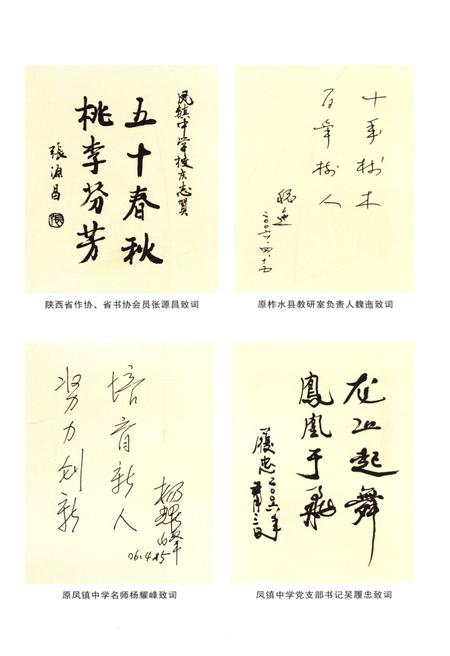 凤镇中学校庆志贺
五十春秋
桃李芬芳
张源昌
陕西省作协、省书协会员张源昌致词
十年树木
百年树人
魏迤
二〇〇六·四·十五
原柞水县教研室负责人魏迤致词
培育新人
努力创新
杨耀峰
06.4.15
原凤镇中学名师杨耀峰致词
龙山起舞
鳳凰于飛
履忠二〇〇六年
凤镇中学党支部书记吴履忠致词